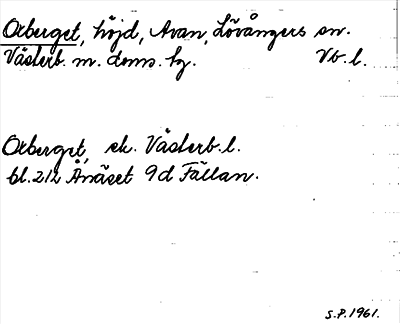 Oxberget, höjd, Avan, Lövångers sn.
Västerb. m. doms. hg. Vb. l.
Oxberget, ek. Västerb. l.
bl. 212 Ånäset 9d Fällan.
S.P. 1961.